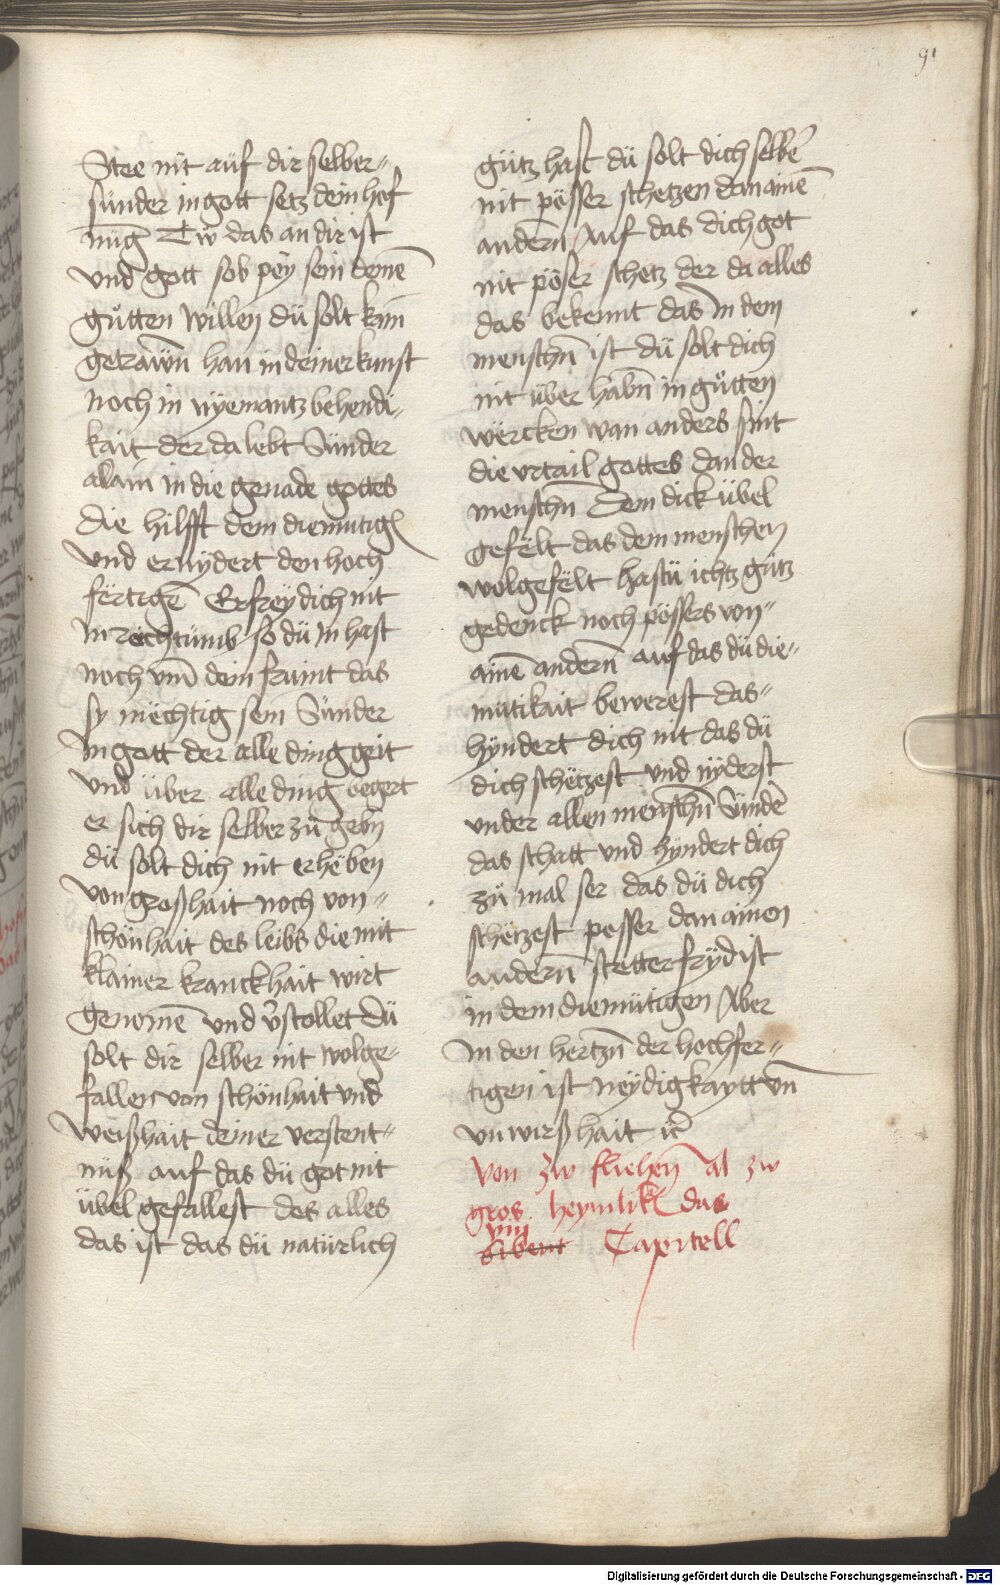 91
Stee nit aüf dir selber"
sünder in gott setz dein hof
nüg Tw das an dir ist
vnd gott sob pey sein deinē
gůtten willen dü solt kain
getrawn̄ han in deiner kunst
noch in nyemantz behendi„
kait der da lebt Sünder
alain in die genade gottes
die hilfft dem diemutigē
vnd ernydert den hoch
fërtigē Erfrey dich nit
In rëichtümb so dü in hast
noch vm̄ dein fraint das
sy mëchtig sein Sünder
In gott der alle ding geit
vnd über alle ding begert
er sich dir selber zü gebn
dü solt dich nit erhëben
von großhait noch von"
schönhait des leibs die mit
klainer kranckhait wirt
genomē vnd v̄stollet dü
solt dir selber nit wolge"
fallen von schönhait vnd
weißhait deiner verstent"
nüß auf das dü got nit
übel gefallest des alles
das ist das dü natürlich
gütz hast dü solt dich selbē
nit pösser schetzen dan ainē
andern̄ Auf das dich got
nit pöser schetz der da alles
das bekennt das in dem
menschn̄ ist dü solt dich
nit über habn̄ in gůtten
wërcken wan anders sint
die vrtail gottes dan der
menschn̄ Dem dick übel
gefëlt das dem menschen
wolgefëlt hastü ichtz gütz
gedenck noch pössers von"
ainē andern̄ auf das dü die"
mütikait bewerest das"
hyndert dich nit das dü
dich schëtzest vnd nÿderst
vnder allen menschn̄ Sündē
das schatt vnd hÿndert dich
zü mal ser das dü dich
schëtzest posser dan ainen
andern̄ stetter fryd ist
in dem diemütigen Aber
In den hertzn̄ der hochfer"
tigen ist neÿdigkaytt vn̄
vnwirßhait ic̄
Von zw fliehen̄ al zw
gros heymlikē das
viij
sibent Capitell
Digitalisierung gefördert durch die Deutsche Forschungsgemeinschaft - DFG